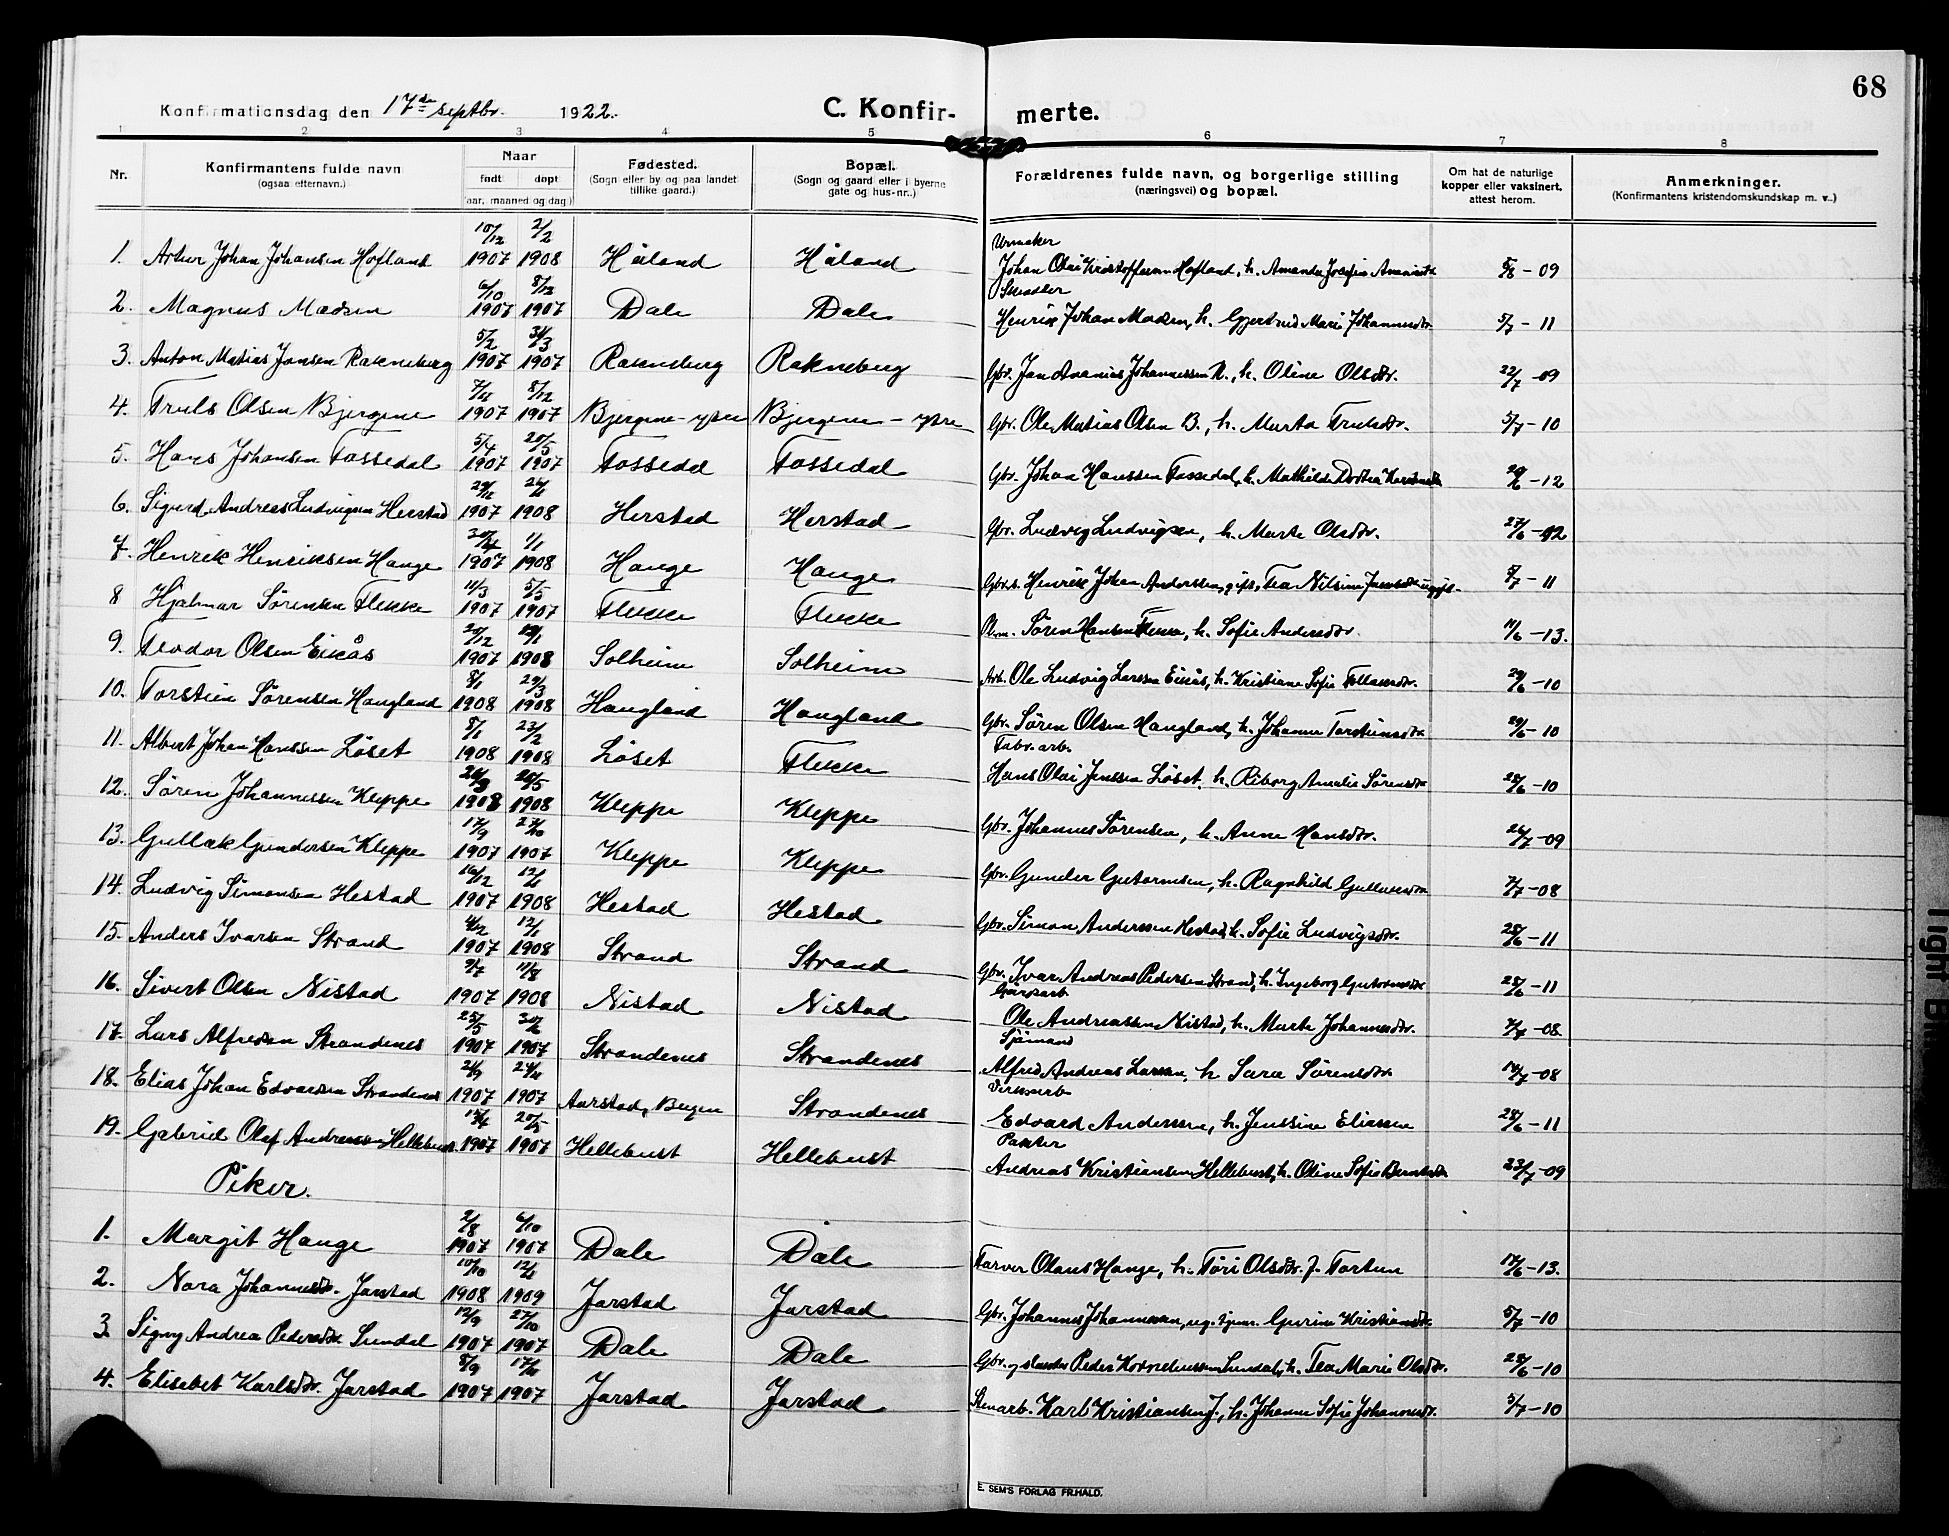 68
Konfirmationsdag den 17de septbr. 1922. C. Konfirmerte.
1 2 3 4 5 6 7 8
Nr. Konfirmantens fulde navn (ogsaa efternavn.) Naar født døpt (aar, maaned og dag.) Fødested. (Sogn eller by og paa landet tillike gaard.) Bopæl. (Sogn og gaard eller i byerne gate og hus-nr.) Forældrenes fulde navn, og borgerlige stilling (næringsvei) og bopæl. Om hat de naturlige kopper eller vaksinert, attest herom. Anmerkninger. (Konfirmantens kristendomskundskap m. v.)
1. Artur Johan Johansen Hofland 10/12 1907 2/2 1908 Håland Håland Urmaker Johan Olai Kristoffersen Hofland, h. Amanda Josefine 5/8 - 09
2. Magnus Madsen 6/10 1907 8/12 1907 Dale Dale Snedker Henrik Johan Madsen, h. Gjertrud Marie Johannesdtr. 5/7 - 11
3. Anton Matias Jansen Rakneberg 5/2 1907 31/3 1907 Rakneberg Rakneberg Gbr. Jan Ananias Johannessen R., h. Oline Olsdtr. 22/7 - 09
4. Truls Olsen Bjergene 7/11 1907 8/12 1907 Bjergene - ytre Bjergene - ytre Gbr. Ole Matias Olsen B., h. Marta Trulsdtr. 5/7 - 10
5. Hans Johansen Tossedal 5/4 1907 20/5 1907 Tossedal Tossedal Gbr. Johan Hanssen Tossedal, h. Mathilde Dortea - 12
6. Sigurd Andreas Ludvigsen Herstad 1907 26/1 1908 Herstad Herstad Gbr. Ludvig Ludvigsen, h. Marte Olsdtr. 27/6 - 12
7. Henrik Henriksen Hauge 1907 1/1 1908 Hauge Hauge Gbr.s. Henrik Johan Anderssen, gift, Tea Nilsine ugift. - 11
8 Hjalmar Sørensen Flekke 11/3 1907 5/5 1907 Flekke Flekke Sören Hansen Flekke, h. Sofie Andersdtr. 11/6 - 13.
9. Teodor Olsen Eikås 20/12 1907 1908 Solheim Solheim Arb. Ole Ludvig Larssen Eikås, h. Kristiane Sofie 29/6 - 10
10. Torstein Sørensen Haugland 8/1 1908 29/3 1908 Haugland Haugland Gbr. Søren Olsen Haugland, h. Johanne Torsteinsdtr. 29/6 - 10
11. Albert Johan Hanssen Løset 8/1 1908 23/2 1908 Løset Flekke Fabr.arb. Hans Olai Jenssen Løset, h. Riborg Amalie Sørensdtr. 28/6 - 10
12. Søren Johannessen Kleppe 1908 1908 Kleppe Kleppe Gbr. Johannes Sørensen, h. Anne Hansdtr. 26/7 - 09
13. Gullak Gundersen Kleppe 17/9 1907 27/10 1907 Kleppe Kleppe Gbr. Gunder Gutormsen, h. Ragnhild 7/7 - 08
14. Ludvig Simonsen Hestad 16/12 1907 12/1 1908 Hestad Hestad Gbr. Simon Anderssen Hestad, h. Sofie Ludvigsdtr. 28/6 - 11
15. Anders Ivarsen Strand 1907 12/1 1908 Strand Strand Gbr. Ivar Andreas Pedersen Strand, h. Ingeborg Gutormsdtr. 28/6 - 11
16. Sivert Olsen Nistad 9/7 1907 11/8 1908 Nistad Nistad Gårdsarb. Ole Andreassen Nistad, h. Marte Johannesdtr. 7/7 - 08
17. Lars Alfredsen Strandenes 25/5 1907 30/6 1907 Strandenes Strandenes Sjømand Alfred Andreas Larsen, h. Sara Sørensdtr. 14/7 - 08
18. Elias Johan Edvardsen Strandenes 21/9 1907 24/11 1907 Aarstad, Bergen Strandenes Verksarb. Edvard Anderssen, h. Jenssine Eliassen 28/6 - 11
19. Gabriel Olaf Andreassen Hellebust 1907 20/5 1907 Hellebust Hellebust Pakker Andreas Kristiansen Hellebust, h. Oline Sofie 23/7 - 09
Piker.
1. Margit Hauge 2/8 1907 6/10 1907 Dale Dale Farver Olaus Hauge, h. Töri Olsdtr. f. Fortun 17/6 - 13.
2. Nora Johannesdtr. Jarstad 10/10 1908 12/1 1909 Jarstad Jarstad Gbr. Johannes Johannessen, ug. tjener. Gurine Kristiansdtr. 5/7 - 10
3 Signy Andrea Pedersdtr. Sundal 12/9 1907 27/10 1907 Dale Dale Gbr. og slagter Peder Korneliussen Sundal, h. Tea Marie Olsdtr. 28/6 - 10
4. Elisebet Karlsdtr. Jarstad 8/9 1907 17/11 1907 Jarstad Jarstad Stenarb. Karl Kristiansen J., h. Johanne Sofie Johannesdtr. 5/7 - 10
E. SEM'S FORLAG FR.HALD.